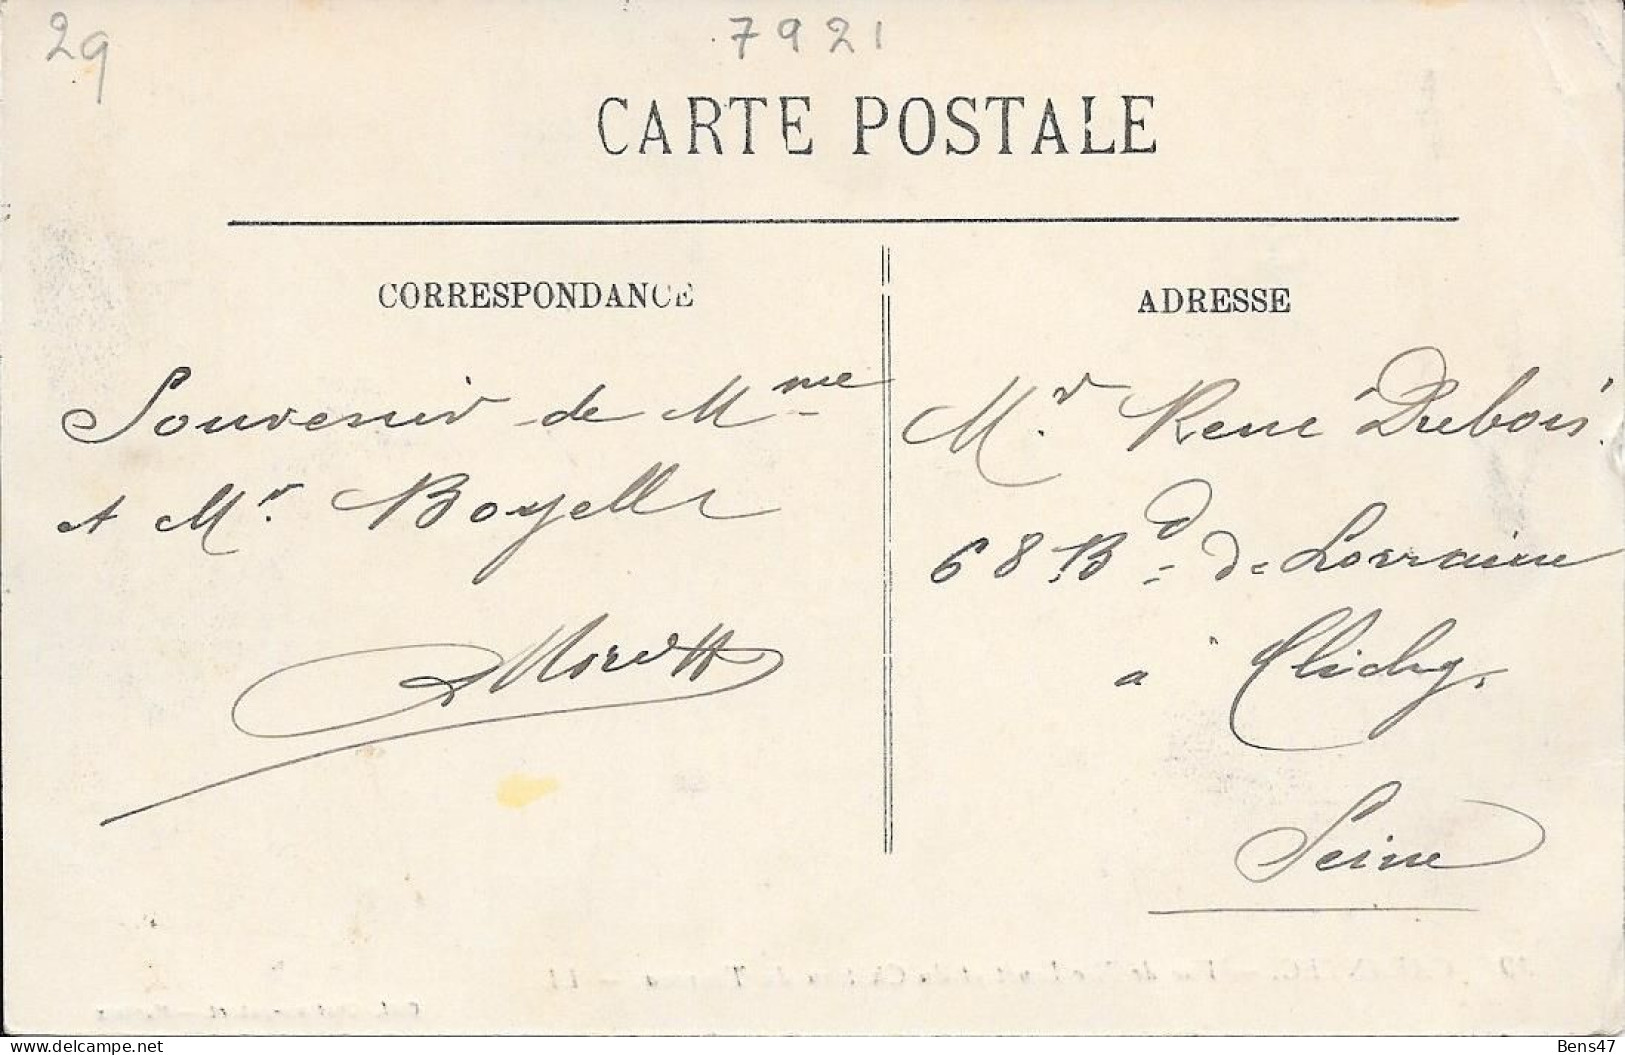 29
7921
CARTE POSTALE
CORRESPONDANCE
Souvenir de Mme
et Mr. Boyelle
ADRESSE
Mr. René Dubois.
68 Bd de Lorraine
a Clichy.
Seine
Bens47